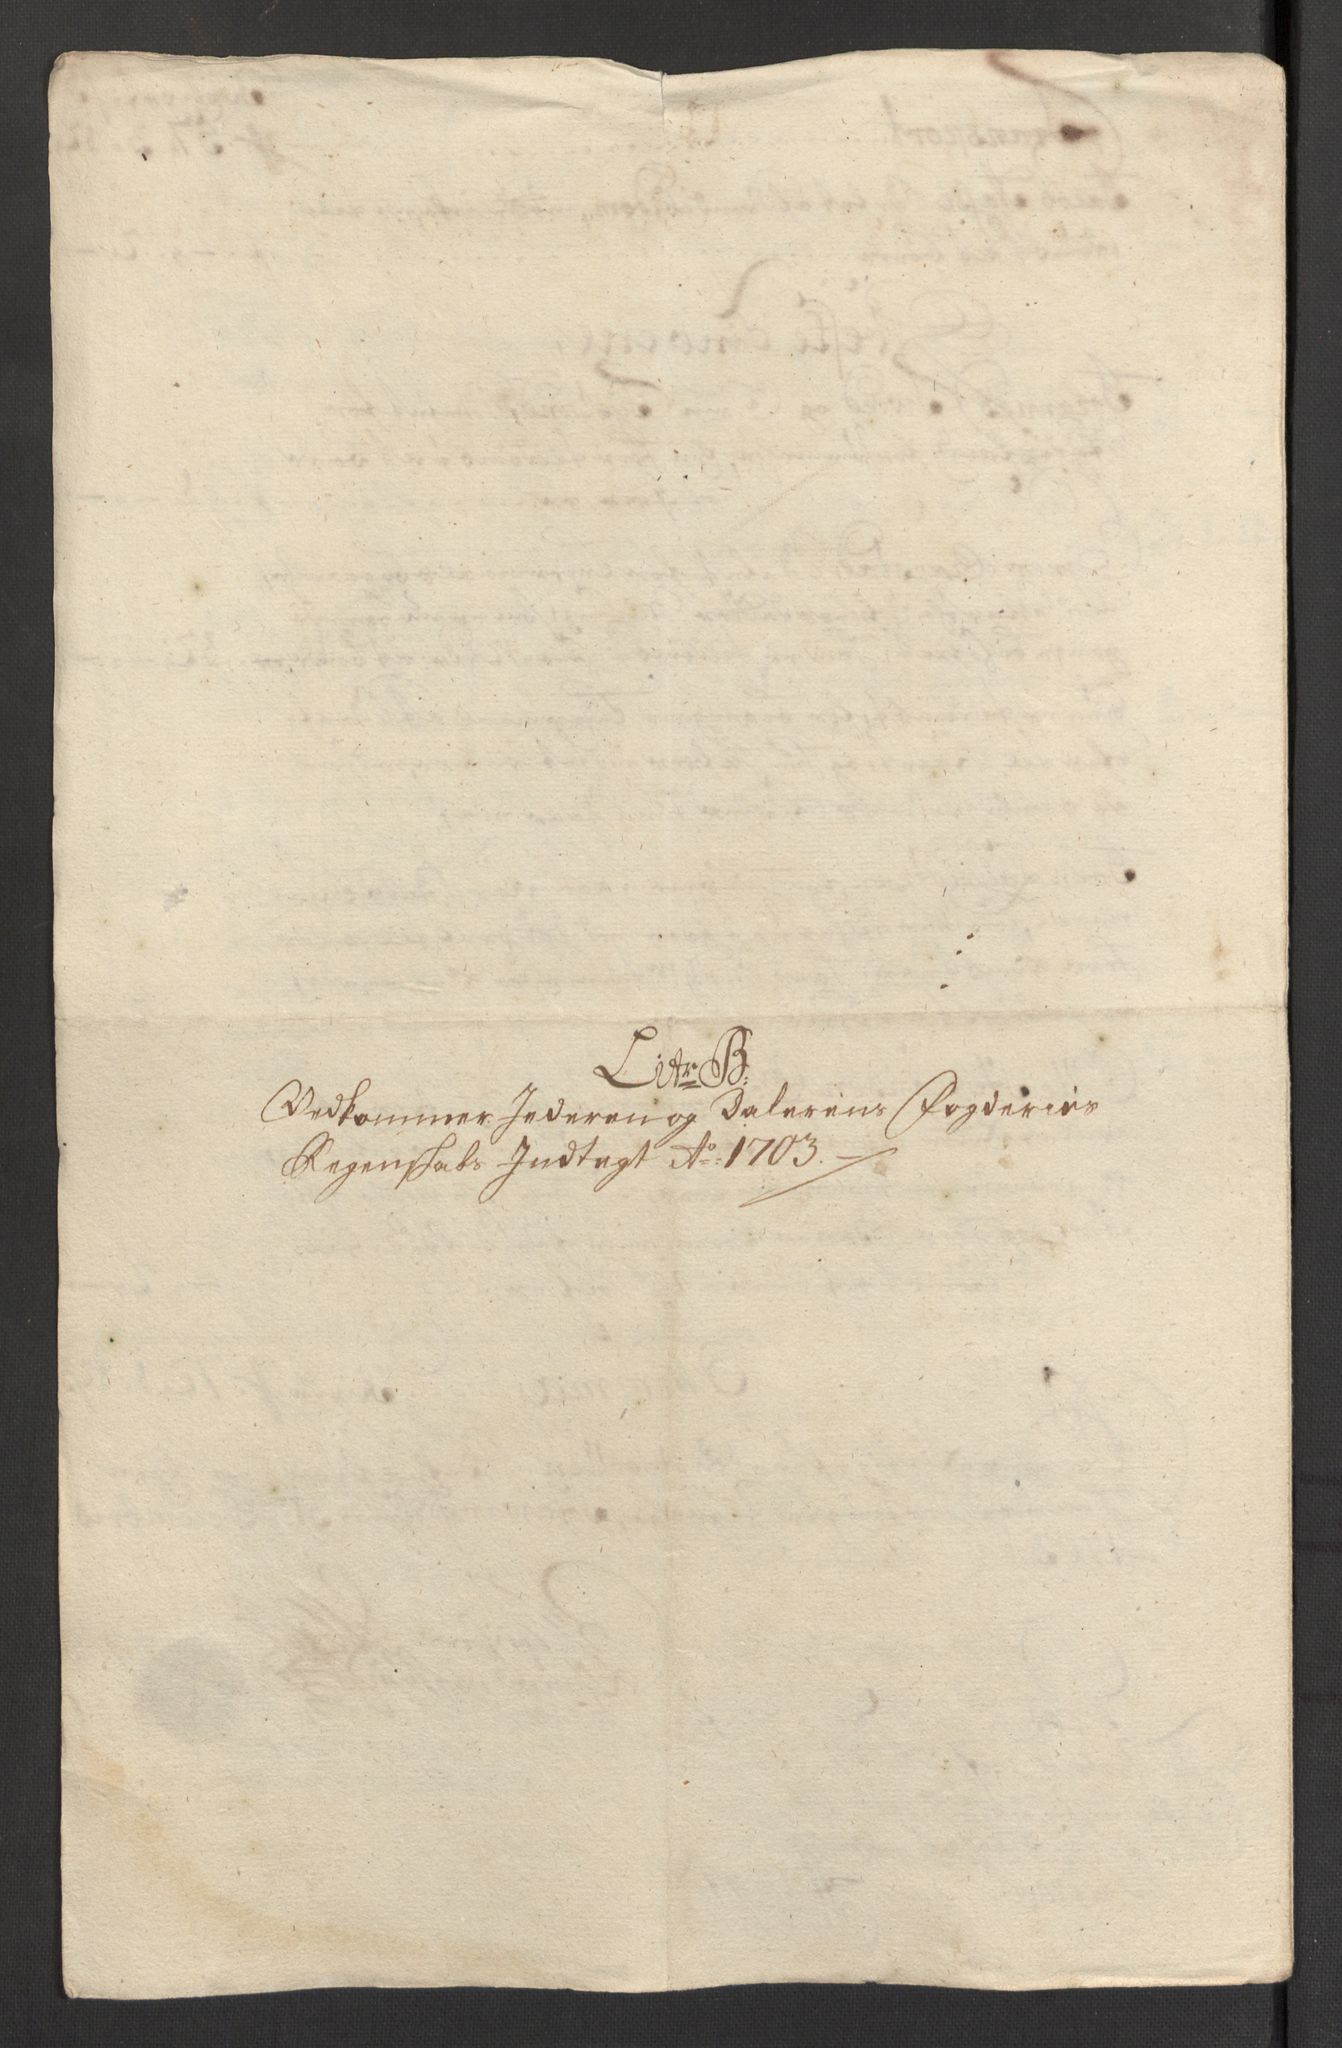 Litr B:
Vedkommer Jederen og Dalerens Fogderies
Regenskabs Indtegt Ao: 1703.